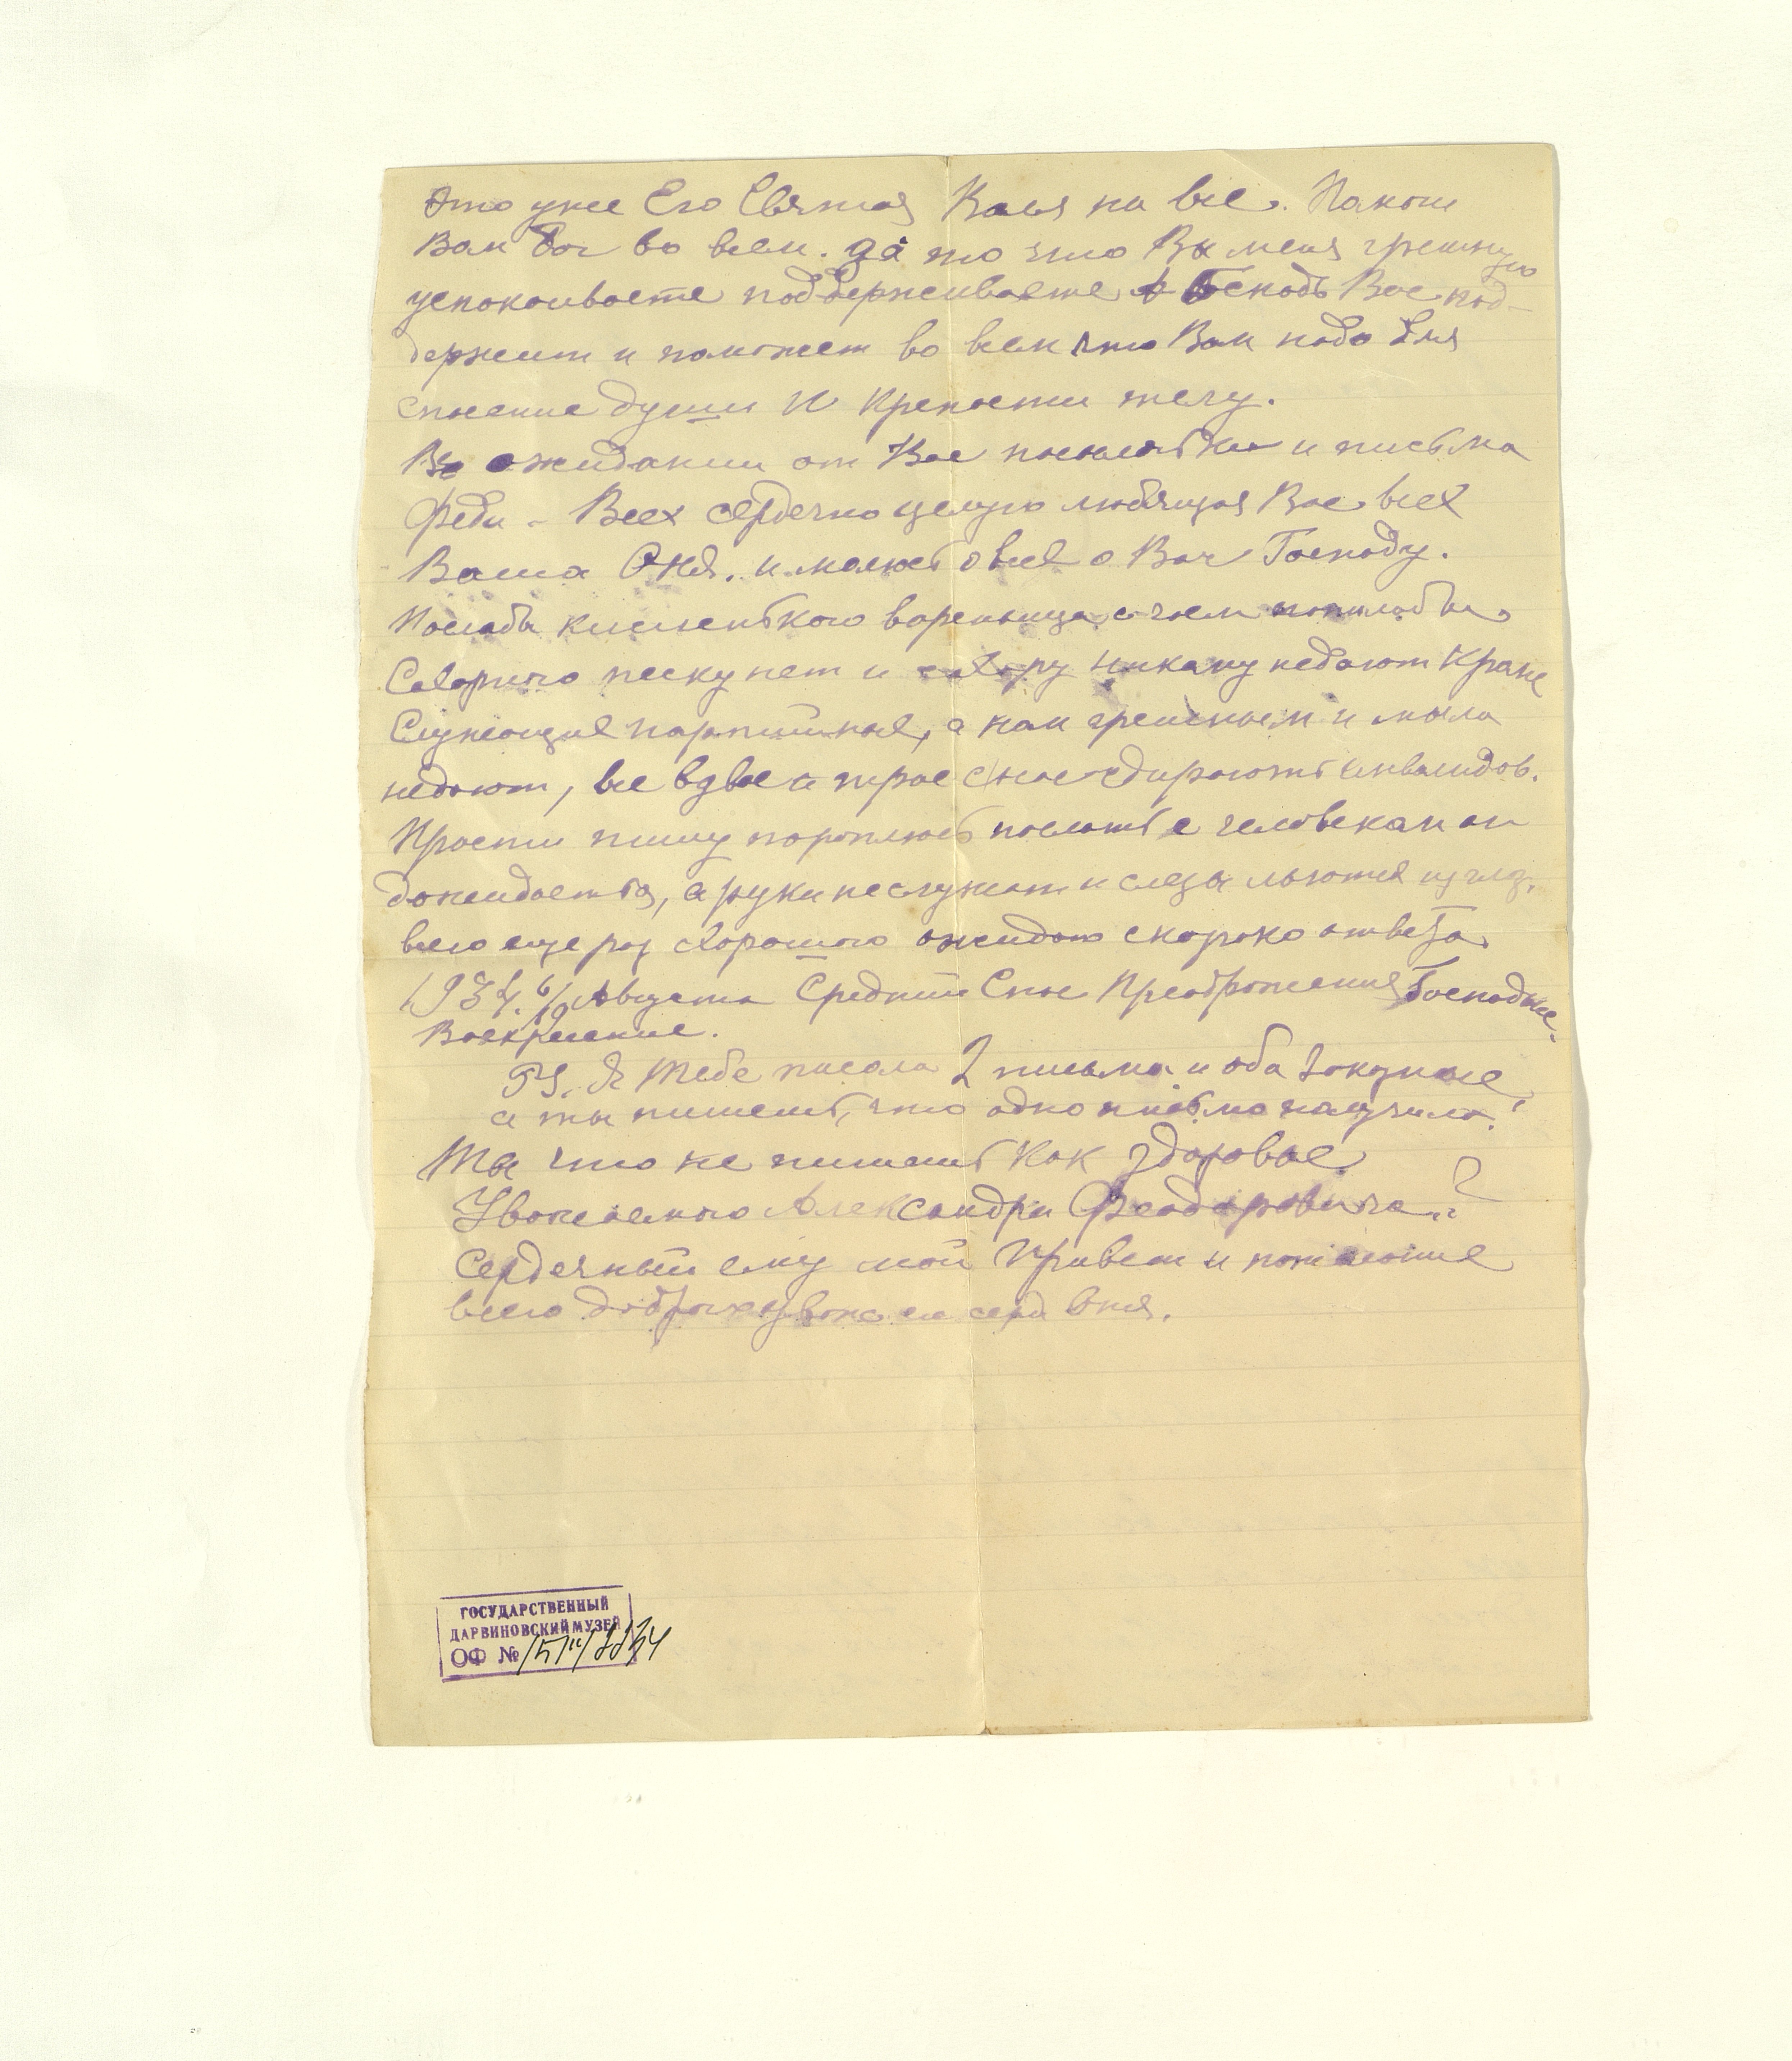 это уже Его Святая Воля на все. Помоги
Вам Бог во всем. за то что Вы меня грешную
успокоиваете поддерживаете Господь Вас под-
держит и поможет во всем что Вам надо для
спасение души и крепости телу.
В ожидании от Вас посылочки и письма
Феди - Всех сердечно целую любящая Вас всех
Ваша Оня. и молюсь о все о Вас Господу.
Послабы кисленького вареньица с чаем
Сахарного песку нет и сахару никому недают Кроме
Служащие партийные, а нам грешным и мыла
недают, все вдвое и трое с нас сдирают инвалидов.
Прости пишу тороплюсь послать с человеком он
дожидается, а руки не служат и слезы льются из глаз.
всего еще раз хорошого ожидаю скорого ответа.
1934. 6/19 Августа Средний Спас Преображения Господне.
Воскресение.
PS. Я тебе писала 2 письма и оба заказные
а ты пишешь, что одно письмо получила.!
Ты что не пишешь как здоровье
Уважаемого Александра Феодоровича..?
Сердечный ему мой Привет и пожелание
всего доброго Оня.
ГОСУДАРСТВЕННЫЙ
ДАРВИНОВСКИЙ МУЗЕЙ
ОФ №